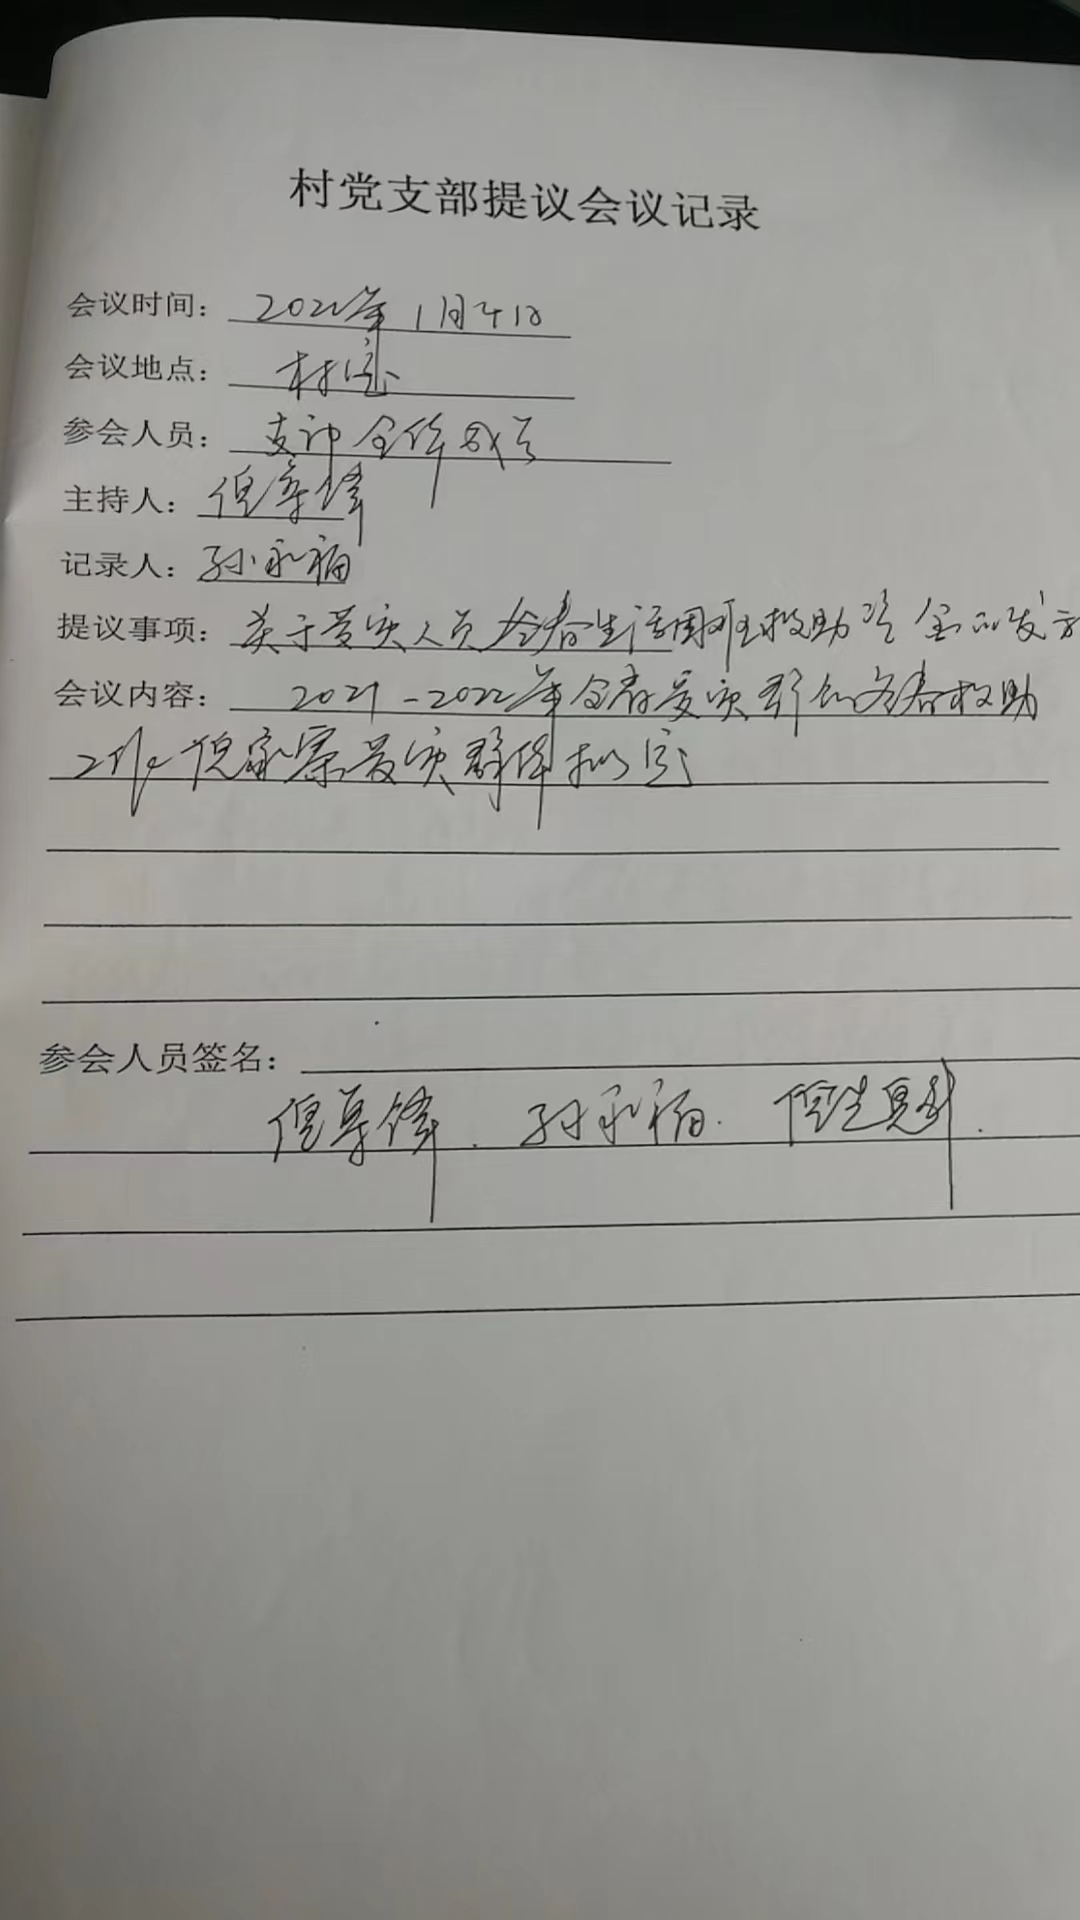 村党支部提议会议记录
会议时间：2022年1月4日
会议地点：村室
参会人员：支部全体成员
主持人：倪章锋
记录人：孙永福
提议事项：关于受灾人员冬春生活困难救助资金的发
会议内容：2021-2022年全省受灾群众冬春救助
工作 倪家寨受灾群体拟定
参会人员签名：
倪章锋. 孙永福.